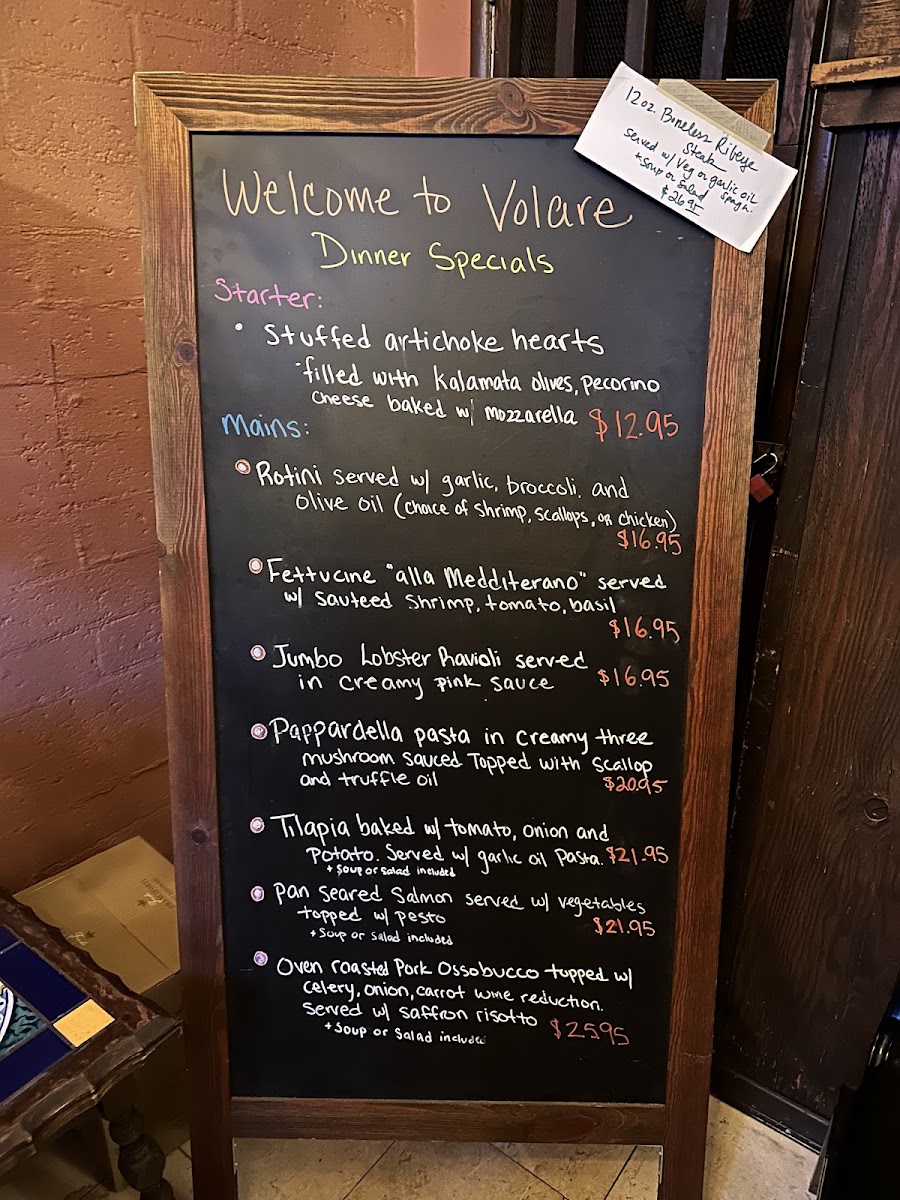 12oz. Boneless Ribeye
Steak
Served w/ Veg or garlic oil
+ Soup or Salad spagh.
$26.95
Welcome to Volare
Dinner Specials
Starter:
• Stuffed artichoke hearts
-filled with Kalamata olives, pecorino
cheese baked w/ mozzarella $12.95
Mains:
Rotini served w/ garlic, broccoli. and
olive oil (choice of shrimp, scallops, or chicken)
$16.95
Fettucine "alla Medditerano" served
w/ sauteed shrimp, tomato, basil
$16.95
Jumbo Lobster Ravioli served
in creamy pink sauce $16.95
Pappardella pasta in creamy three
mushroom sauced Topped with scallop
and truffle oil $20.95
Tilapia baked w/ tomato, onion and
potato. Served w/ garlic oil pasta. $21.95
+ Soup or salad included
Pan seared Salmon served w/ vegetables
topped w/ pesto $21.95
+ Soup or Salad included
Oven roasted Pork Ossobucco topped w/
celery, onion, carrot wine reduction.
Served w/ saffron risotto $25.95
+ Soup or Salad included